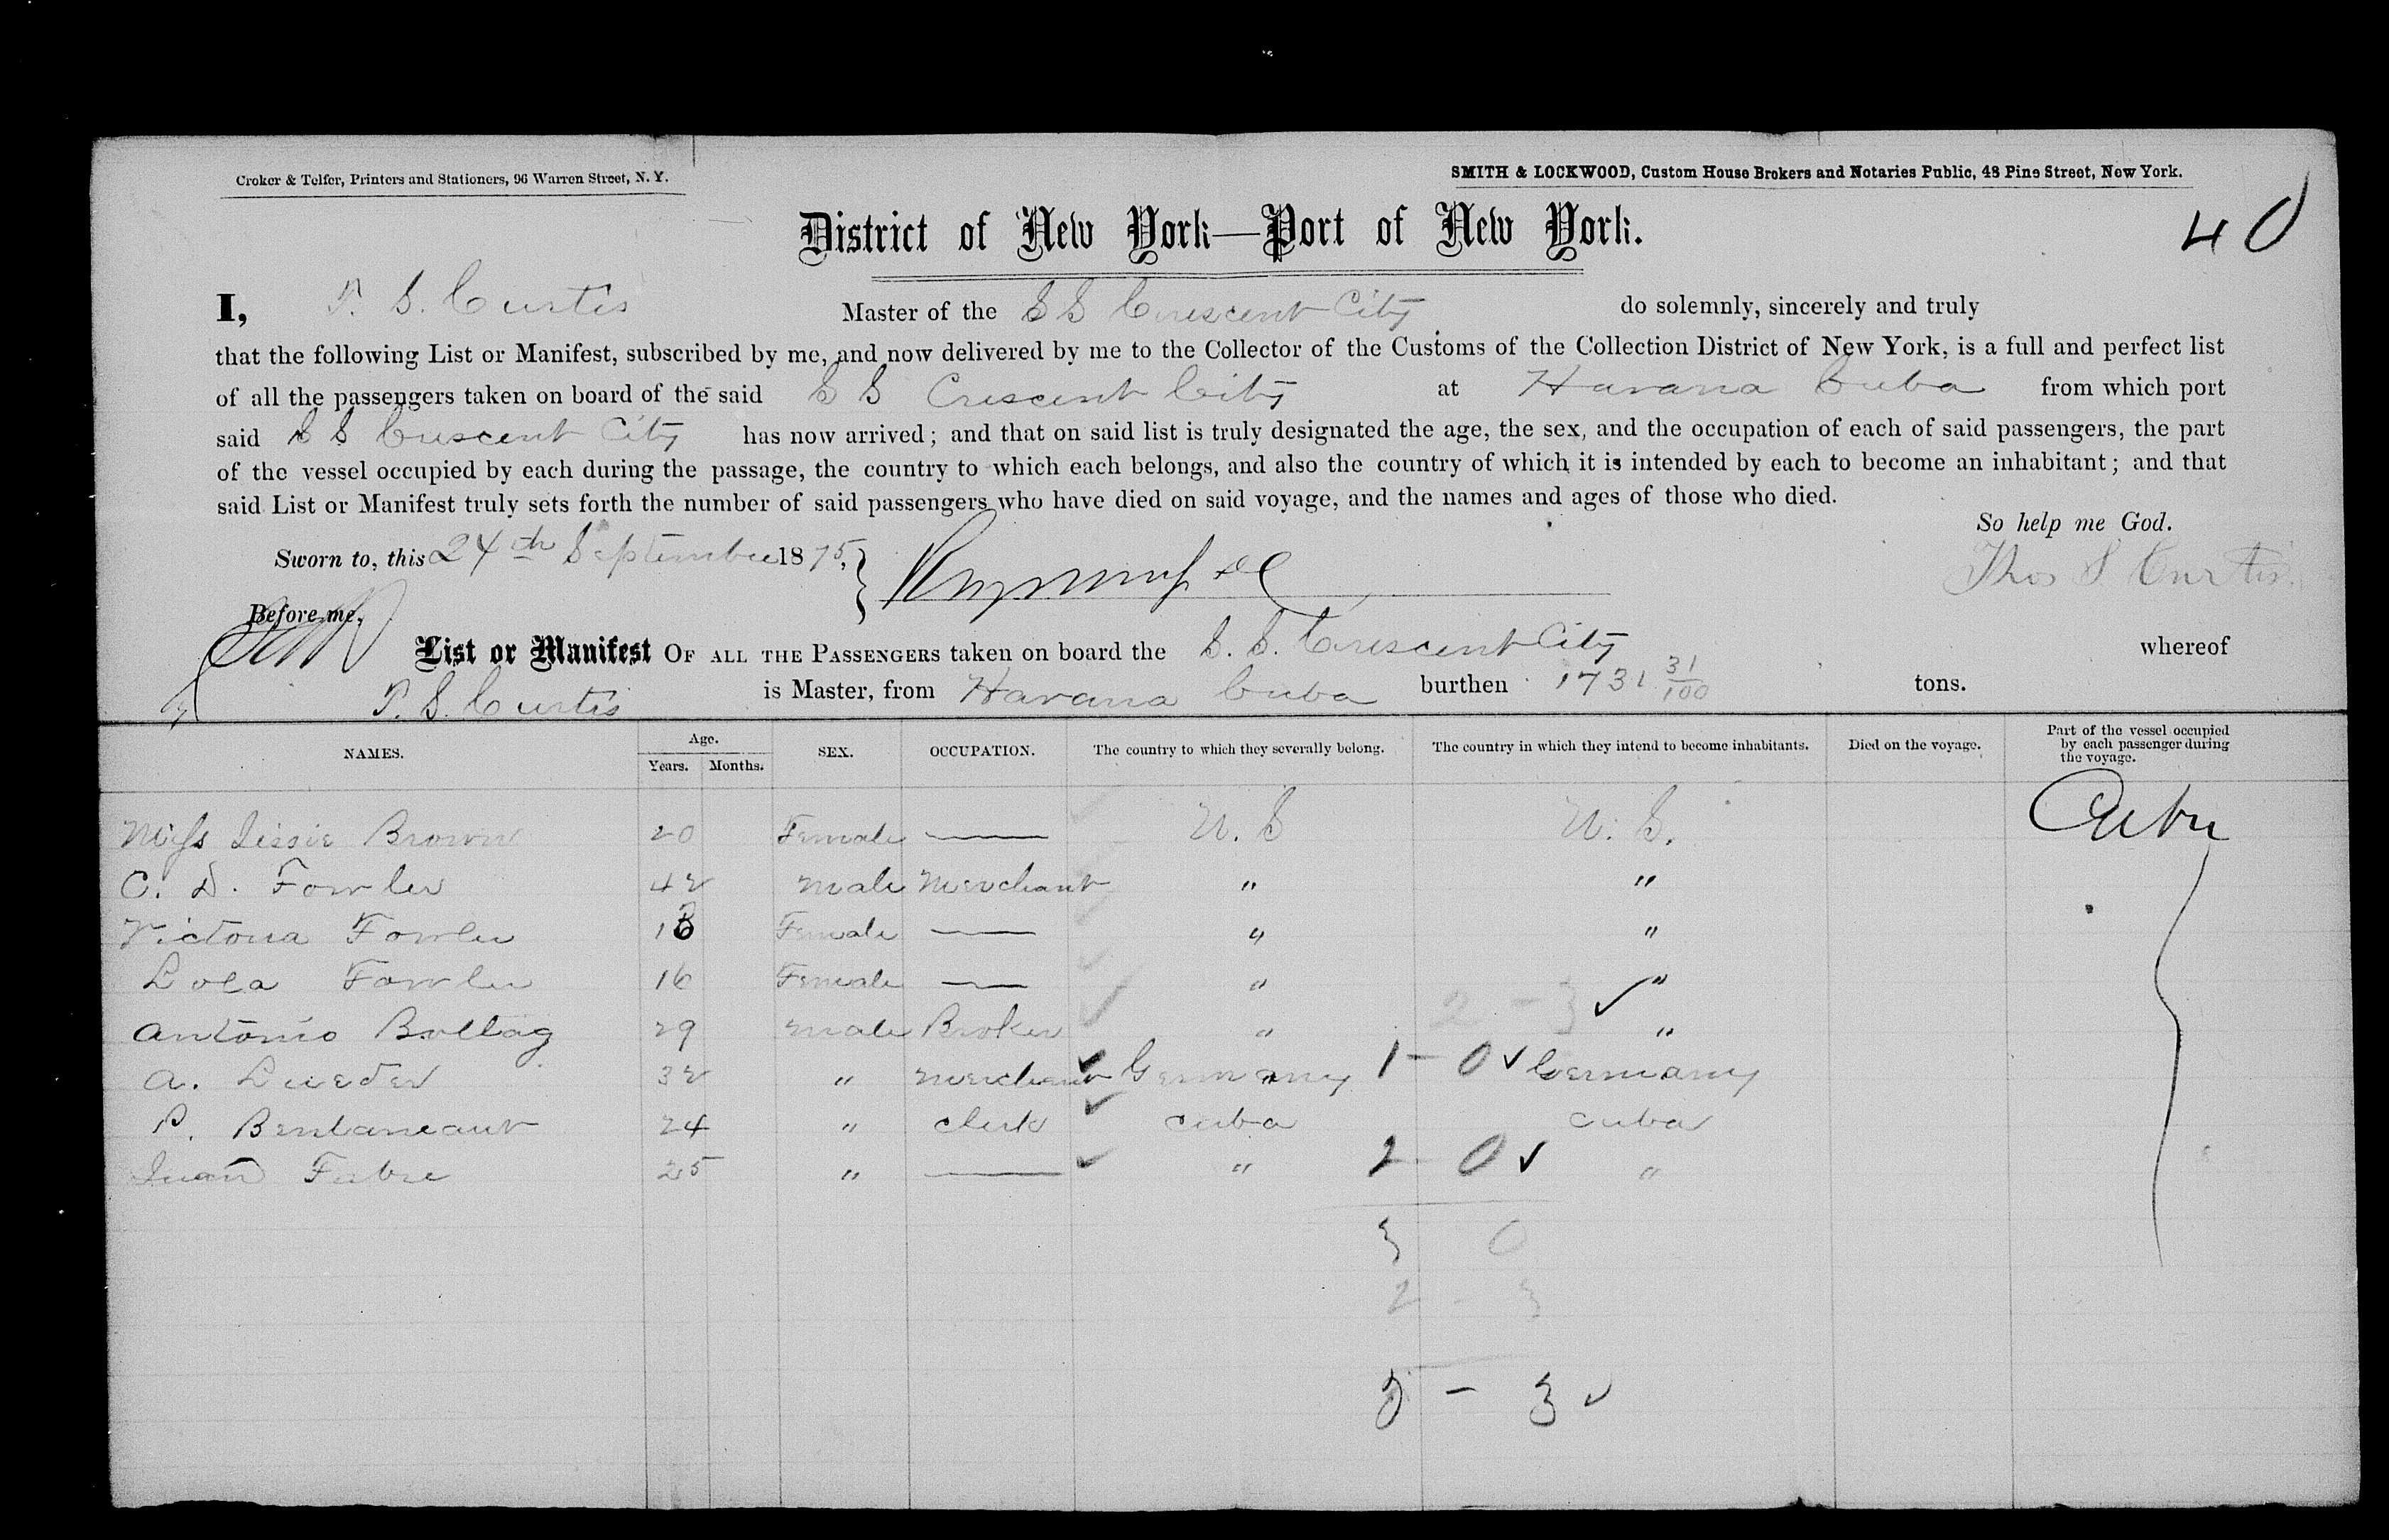 Croker & Telfer, Printers and Stationers, 96 Warren Street, N. Y.
SMITH & LOCKWOOD, Custom House Brokers and Notaries Public, 48 Pine Street, New York.
40
District of New York—Port of New York.
I, T. S. Curtis Master of the S S Crescent City do solemnly, sincerely and truly
that the following List or Manifest, subscribed by me, and now delivered by me to the Collector of the Customs of the Collection District of New York, is a full and perfect list
of all the passengers taken on board of the said S S Crescent City at Havana Cuba from which port
said S S Crescent City has now arrived; and that on said list is truly designated the age, the sex, and the occupation of each of said passengers, the part
of the vessel occupied by each during the passage, the country to which each belongs, and also the country of which it is intended by each to become an inhabitant; and that
said List or Manifest truly sets forth the number of said passengers who have died on said voyage, and the names and ages of those who died.
So help me God.
Sworn to, this 24th September 1875,
Thos S Curtis.
Before me,
List or Manifest OF ALL THE PASSENGERS taken on board the S. S. Crescent City whereof
T. S. Curtis is Master, from Havana Cuba burthen 1731 31/100 tons.
NAMES. Age. Years. Months. SEX. OCCUPATION. The country to which they severally belong. The country in which they intend to become inhabitants. Died on the voyage. Part of the vessel occupied by each passenger during the voyage.
Miss Jessie Brown 20 Female — U. S U. S.
C. D. Fowler 42 male Merchant " "
Victoria Fowler 18 Female — " "
Lola Fowler 16 Female — " "
2 - 3 ✓
Antonio Bollag 29 male Broker " "
A. Lueder 32 " merchant Germany 1 - 0 ✓ Germany
P. 24 " clerk Cuba Cuba
Juan Fabre 25 " — " 2 0 ✓ "
3 0
2 - 3
5 - 3 ✓